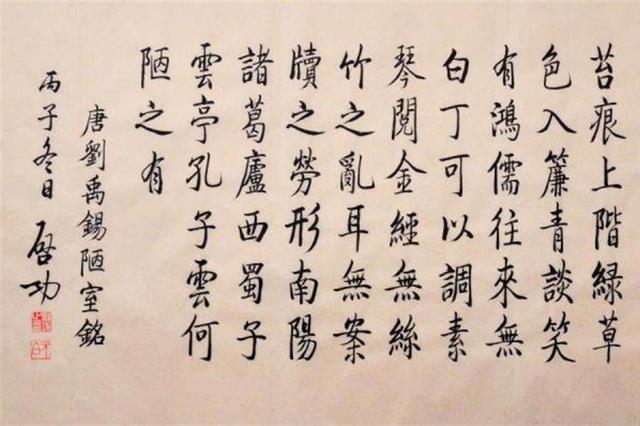 苔痕上階綠草
色入簾青談笑
有鴻儒往來無
白丁可以調素
琴閱金經無絲
竹之亂耳無案
牘之勞形南陽
諸葛廬西蜀子
雲亭孔子雲何
陋之有
唐劉禹錫陋室銘
丙子冬日 啟功